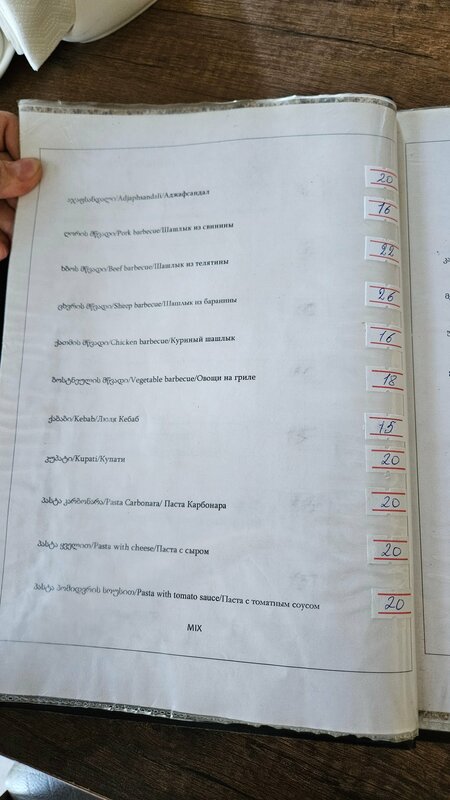 აჯაფსანდალი/Adjaphsandali/Аджафсандал 20
ღორის მწვადი/Pork barbecue/Шашлык из свинины 16
ხბოს მწვადი/Beef barbecue/Шашлык из телятины 22
ცხვრის მწვადი/Sheep barbecue/Шашлык из баранины 26
ქათმის მწვადი/Chicken barbecue/Куриный шашлык 16
ბოსტნეულის მწვადი/Vegetable barbecue/Овощи на гриле 18
ქაბაბი/Kebab/Люля Кебаб 15
კუპატი/Kupati/Купати 20
პასტა კარბონარა/Pasta Carbonara/ Паста Карбонара 20
პასტა ყველით/Pasta with cheese/Паста с сыром 20
პასტა პომიდვრის სოუსით/Pasta with tomato sauce/Паста с томатным соусом 20
MIX